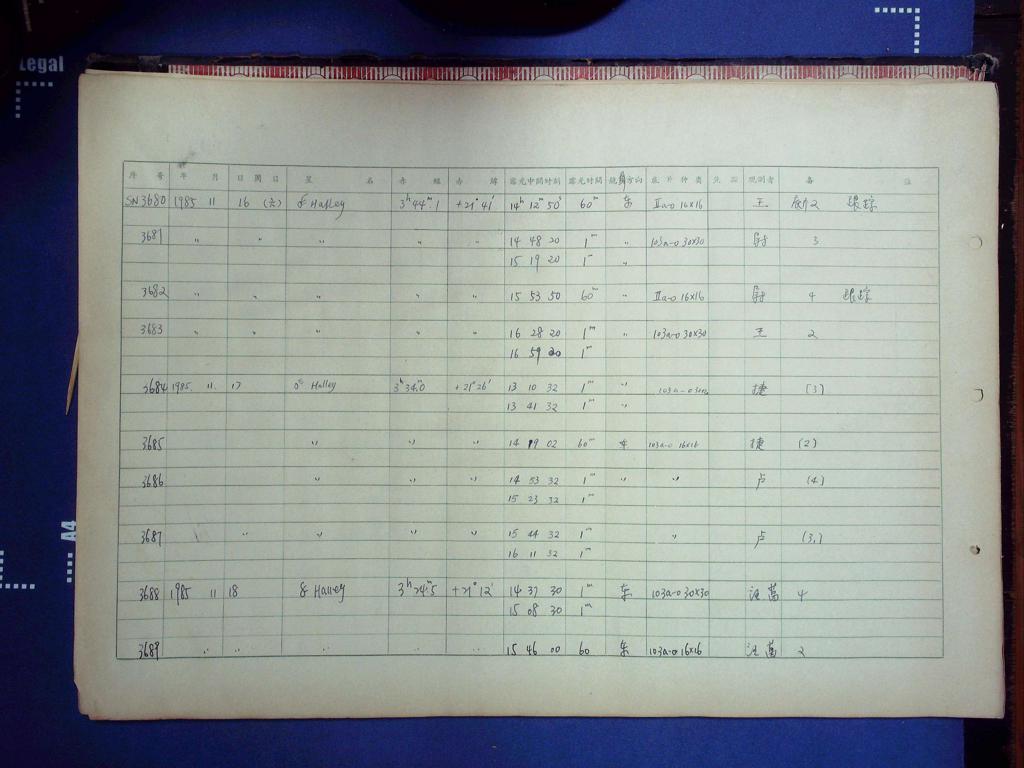 Legal
序 号 年 月 日 周 日 星 名 赤 经 赤 纬 露光中间时刻 露光时间 镜 方向 底 片 种 类 观测者 备 注
SN3680 1985 11 16 (六) Halley 3h 44m.1 +21° 41' 14h 12m 50s 60m 东 IIa-o 16×16 王 2 跟踪
3681 〃 〃 〃 〃 〃 14 48 20 1m 〃 103a-o 30×30 3
15 19 20 1m 〃
3682 〃 〃 〃 〃 〃 15 53 50 60m 〃 IIa-o 16×16 4 跟踪
3683 〃 〃 〃 〃 〃 16 28 20 1m 〃 103a-o 30×30 王 2
16 59 20 1m
3684 1985. 11. 17 Halley 3h 34m.0 +21° 26' 13 10 32 1m 〃 103a-o 30×30 捷 (3)
13 41 32 1m 〃
3685 〃 〃 〃 14 19 02 60m 东 103a-o 16×16 捷 (2)
3686 〃 〃 〃 14 53 32 1m 〃 〃 卢 (4)
15 23 32 1m
3687 〃 〃 〃 〃 15 44 32 1m 〃 卢 (3,)
16 11 32 1m
3688 1985 11 18 Halley 3h 24m.5 +21° 12' 14 37 30 1m 东 103a-o 30×30 汪 万 4
15 08 30 1m
3689 〃 〃 〃 〃 〃 15 46 00 60 东 103a-o 16×16 汪 万 2
A4